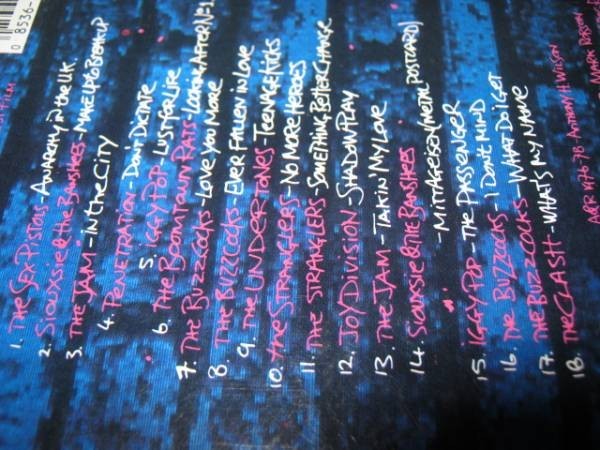 0 8536-
1. THE SEX PISTOLS - ANARCHY IN THE U.K
2. SIOUXSIE & THE BANSHEES - MAKE UP TO BREAK UP
3. THE JAM - IN THE CITY
4. PENETRATION - DON'T DICTATE
5. IGGY POP - LUST FOR LIFE
6. THE BOOMTOWN RATS - LOOKING AFTER No 1
7. THE BUZZCOCKS - LOVE YOU MORE
8. THE BUZZCOCKS - EVER FALLEN IN LOVE
9. THE UNDERTONES - TEENAGE KICKS
10. THE STRANGLERS - NO MORE HEROES
11. THE STRANGLERS SOMETHING BETTER CHANGE
12. JOY DIVISION SHADOWPLAY
13. THE JAM - TAKIN' MY LOVE
14. SIOUXSIE & THE BANSHEES
- MITTAGEISEN (METAL POSTCARD)
15. IGGY POP - THE PASSENGER
16. THE BUZZCOCKS - I DON'T MIND
17. THE BUZZCOCKS - WHAT DO I GET
18. THE CLASH - WHAT'S MY NAME
1976-78 - ANTHONY H. WILSON
MARK